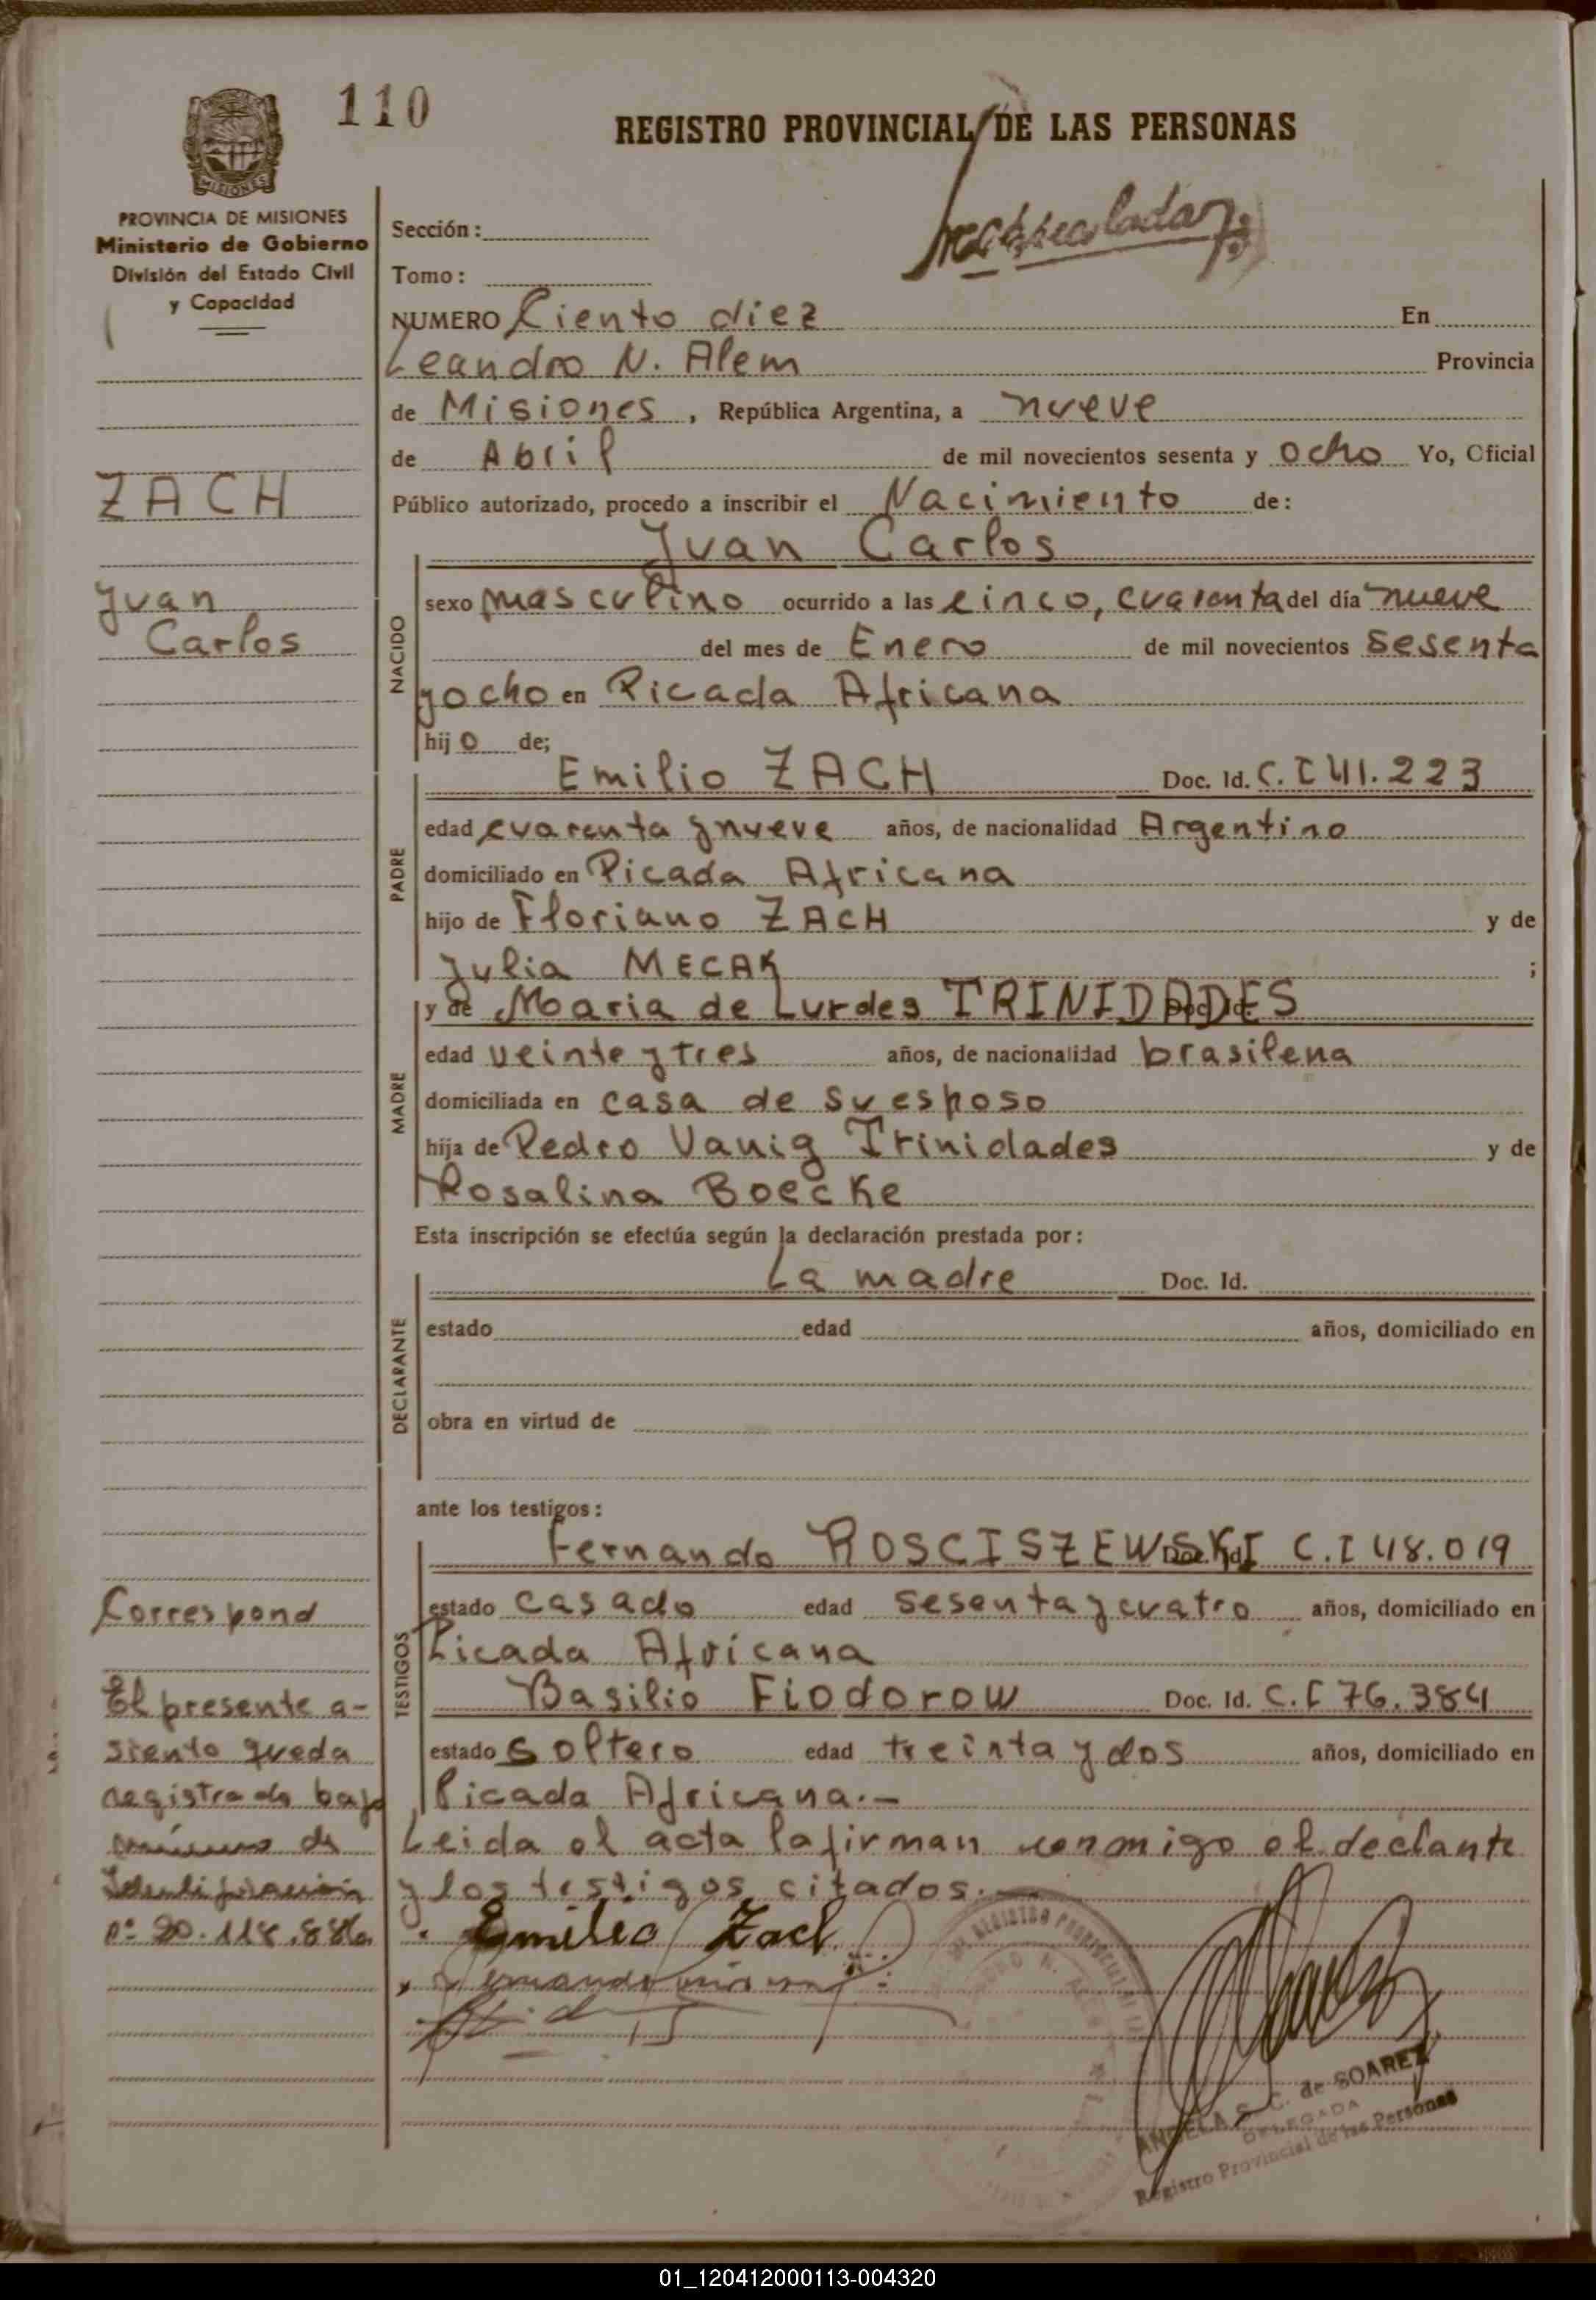 110
REGISTRO PROVINCIAL DE LAS PERSONAS
MISIONES
PROVINCIA DE MISIONES
Ministerio de Gobierno
División del Estado Civil
y Capacidad
ZACH
Juan
Carlos
Correspond
El presente a-
siento queda
registrado bajo
número de
Identificación
nº 20.118.886
Sección:
Tomo:
NUMERO Ciento diez En
Leandro N. Alem Provincia
de Misiones, República Argentina, a nueve
de Abril de mil novecientos sesenta y ocho Yo, Oficial
Público autorizado, procedo a inscribir el Nacimiento de:
Juan Carlos
NACIDO
sexo masculino ocurrido a las cinco, cuarenta del día nueve
del mes de Enero de mil novecientos sesenta
y ocho en Picada Africana
hijo de;
PADRE
Emilio ZACH Doc. Id. C.I 41.223
edad cuarenta y nueve años, de nacionalidad Argentino
domiciliado en Picada Africana
hijo de Floriano ZACH y de
Julia MECAK ;
MADRE
y de Maria de Lurdes TRINIDADES Doc. Id.
edad veinte y tres años, de nacionalidad brasilena
domiciliada en casa de su esposo
hija de Pedro Vanig Trinidades y de
Rosalina Boecke
Esta inscripción se efectúa según la declaración prestada por:
DECLARANTE
La madre Doc. Id.
estado edad años, domiciliado en
obra en virtud de
ante los testigos:
TESTIGOS
Fernando ROSCISZEWSKI Doc. Id. C.I 48.019
estado casado edad sesenta y cuatro años, domiciliado en
Picada Africana
Basilio Fiodorow Doc. Id. C.I 76.384
estado soltero edad treinta y dos años, domiciliado en
Picada Africana.-
Leida el acta la firman conmigo el declante
y los testigos citados.-
Emilio Zach
ANGELA S. C. de SOAREZ
DELEGADA
Registro Provincial de las Personas
01_120412000113-004320